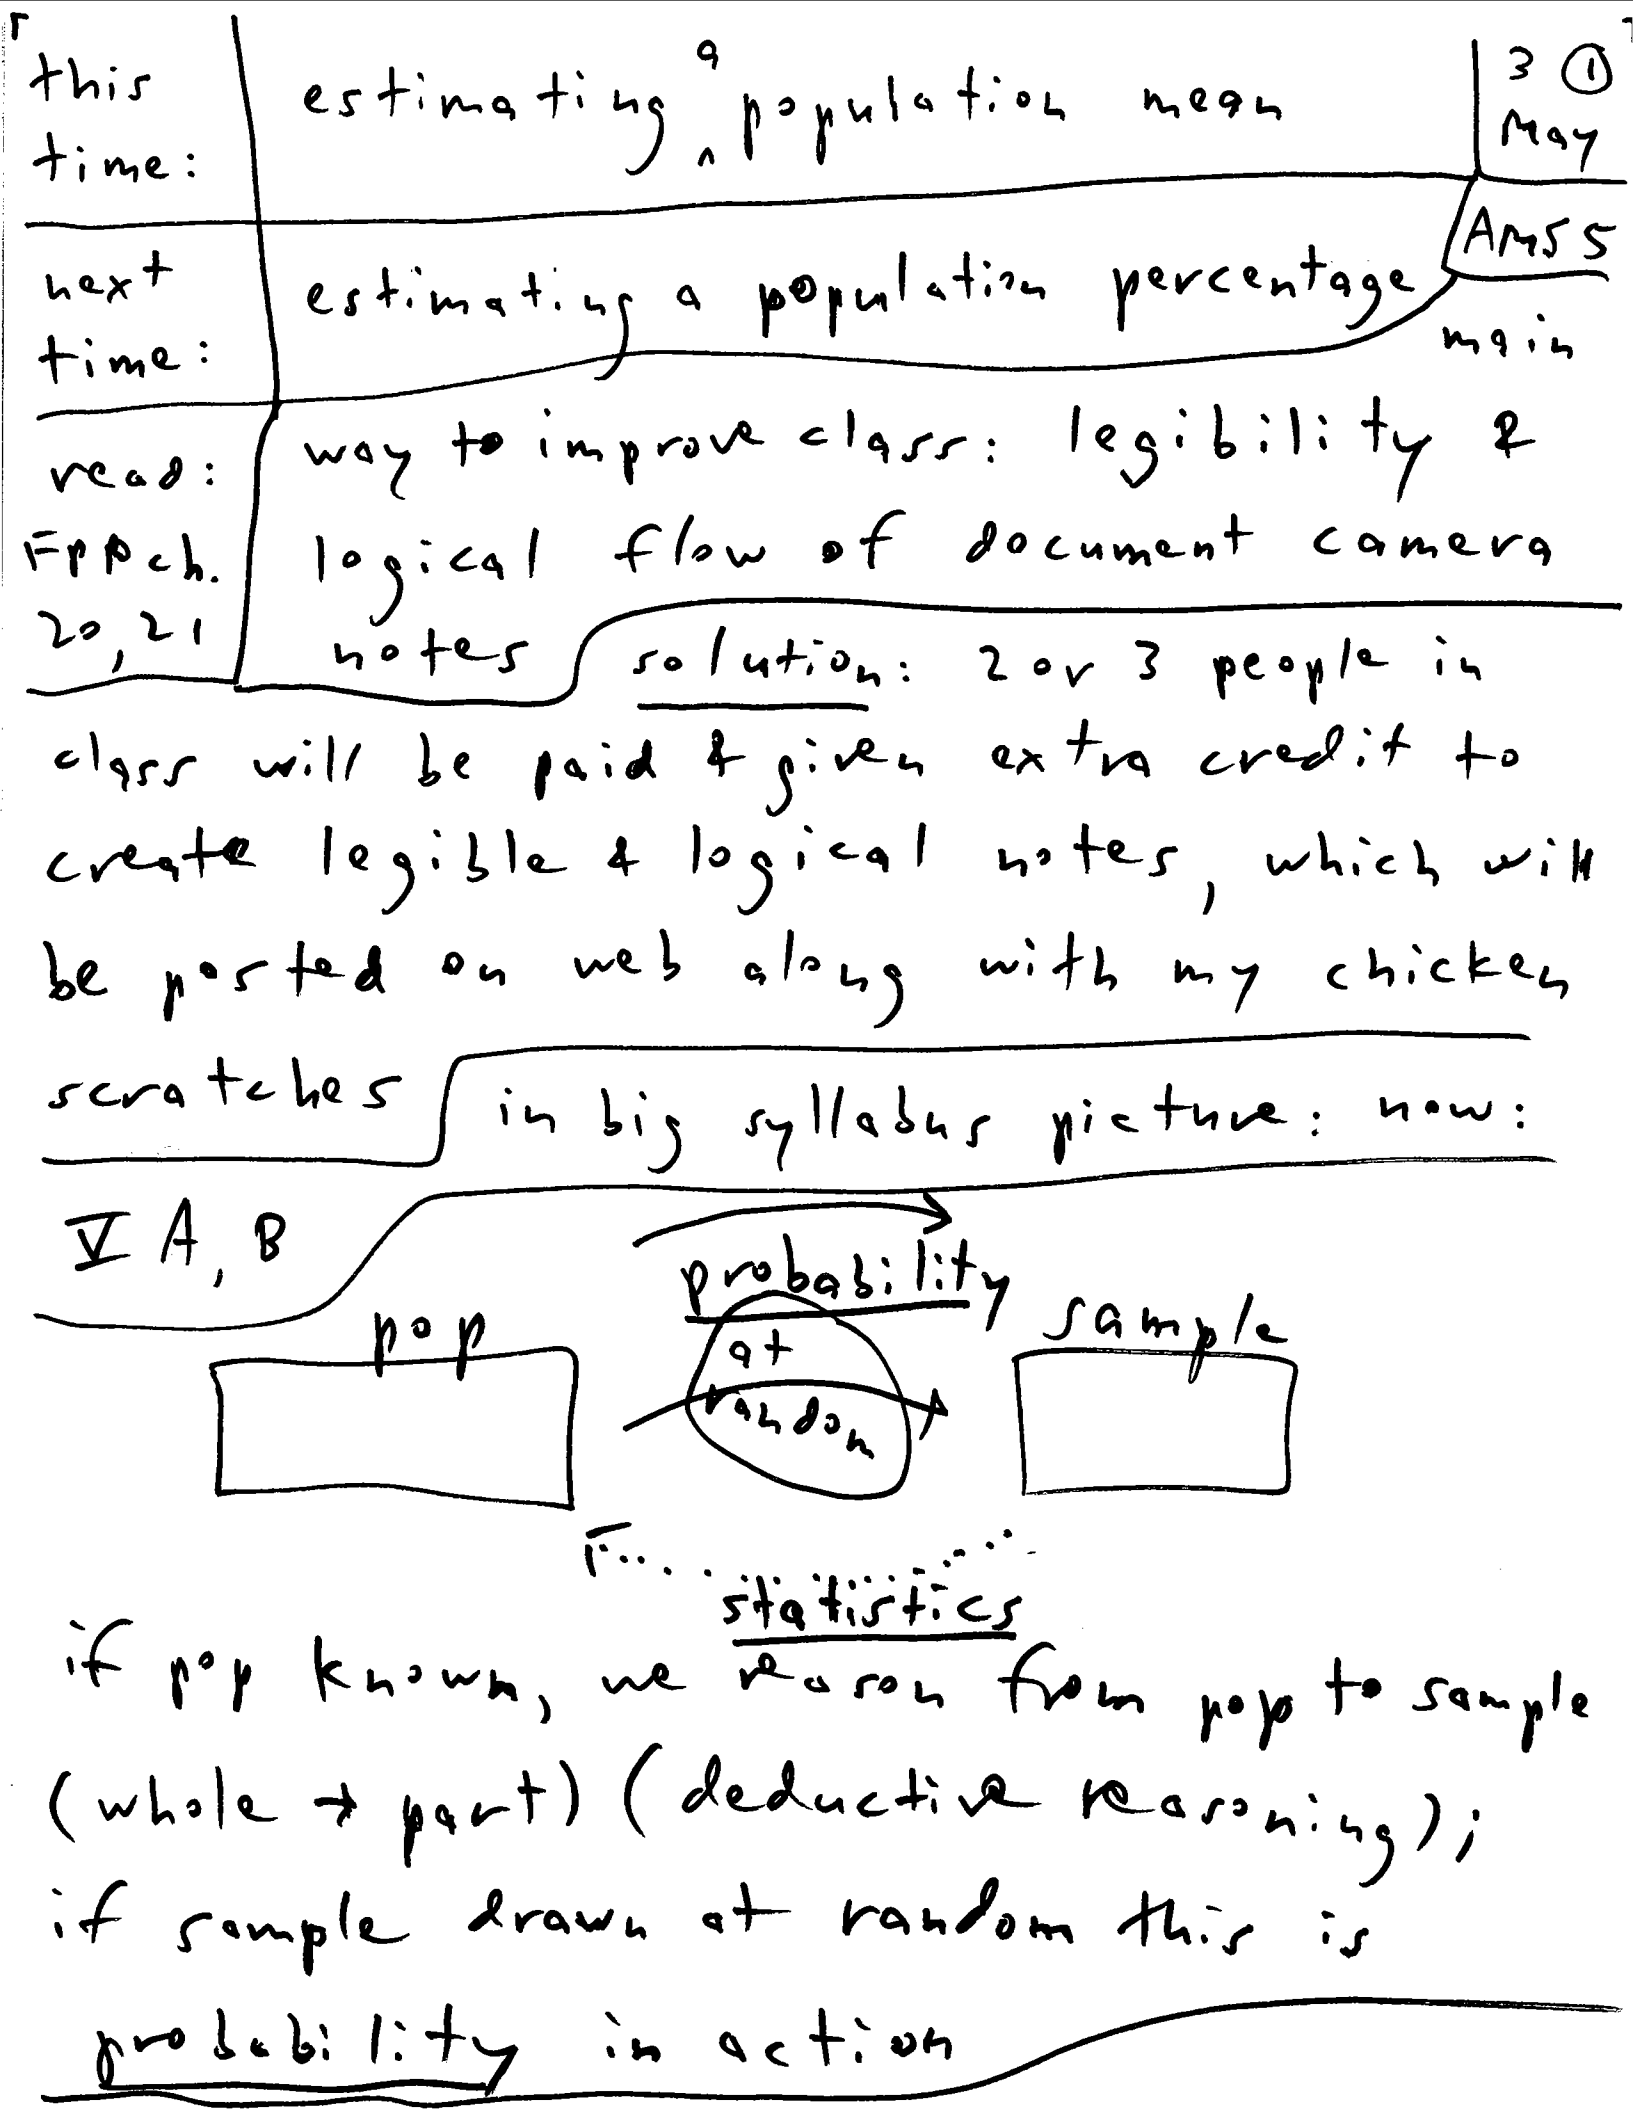 this time: estimating a population mean
3 ① May
next time: estimating a population percentage
AMS 5
main
read: FPP ch. 20, 21
way to improve class: legibility &
logical flow of document camera
notes
solution: 2 or 3 people in
class will be paid & given extra credit to
create legible & logical notes, which will
be posted on web along with my chicken
scratches
in big syllabus picture: now:
V A, B
probability
pop
at random
sample
statistics
if pop known, we reason from pop to sample
(whole → part) (deductive reasoning);
if sample drawn at random this is
probability in action